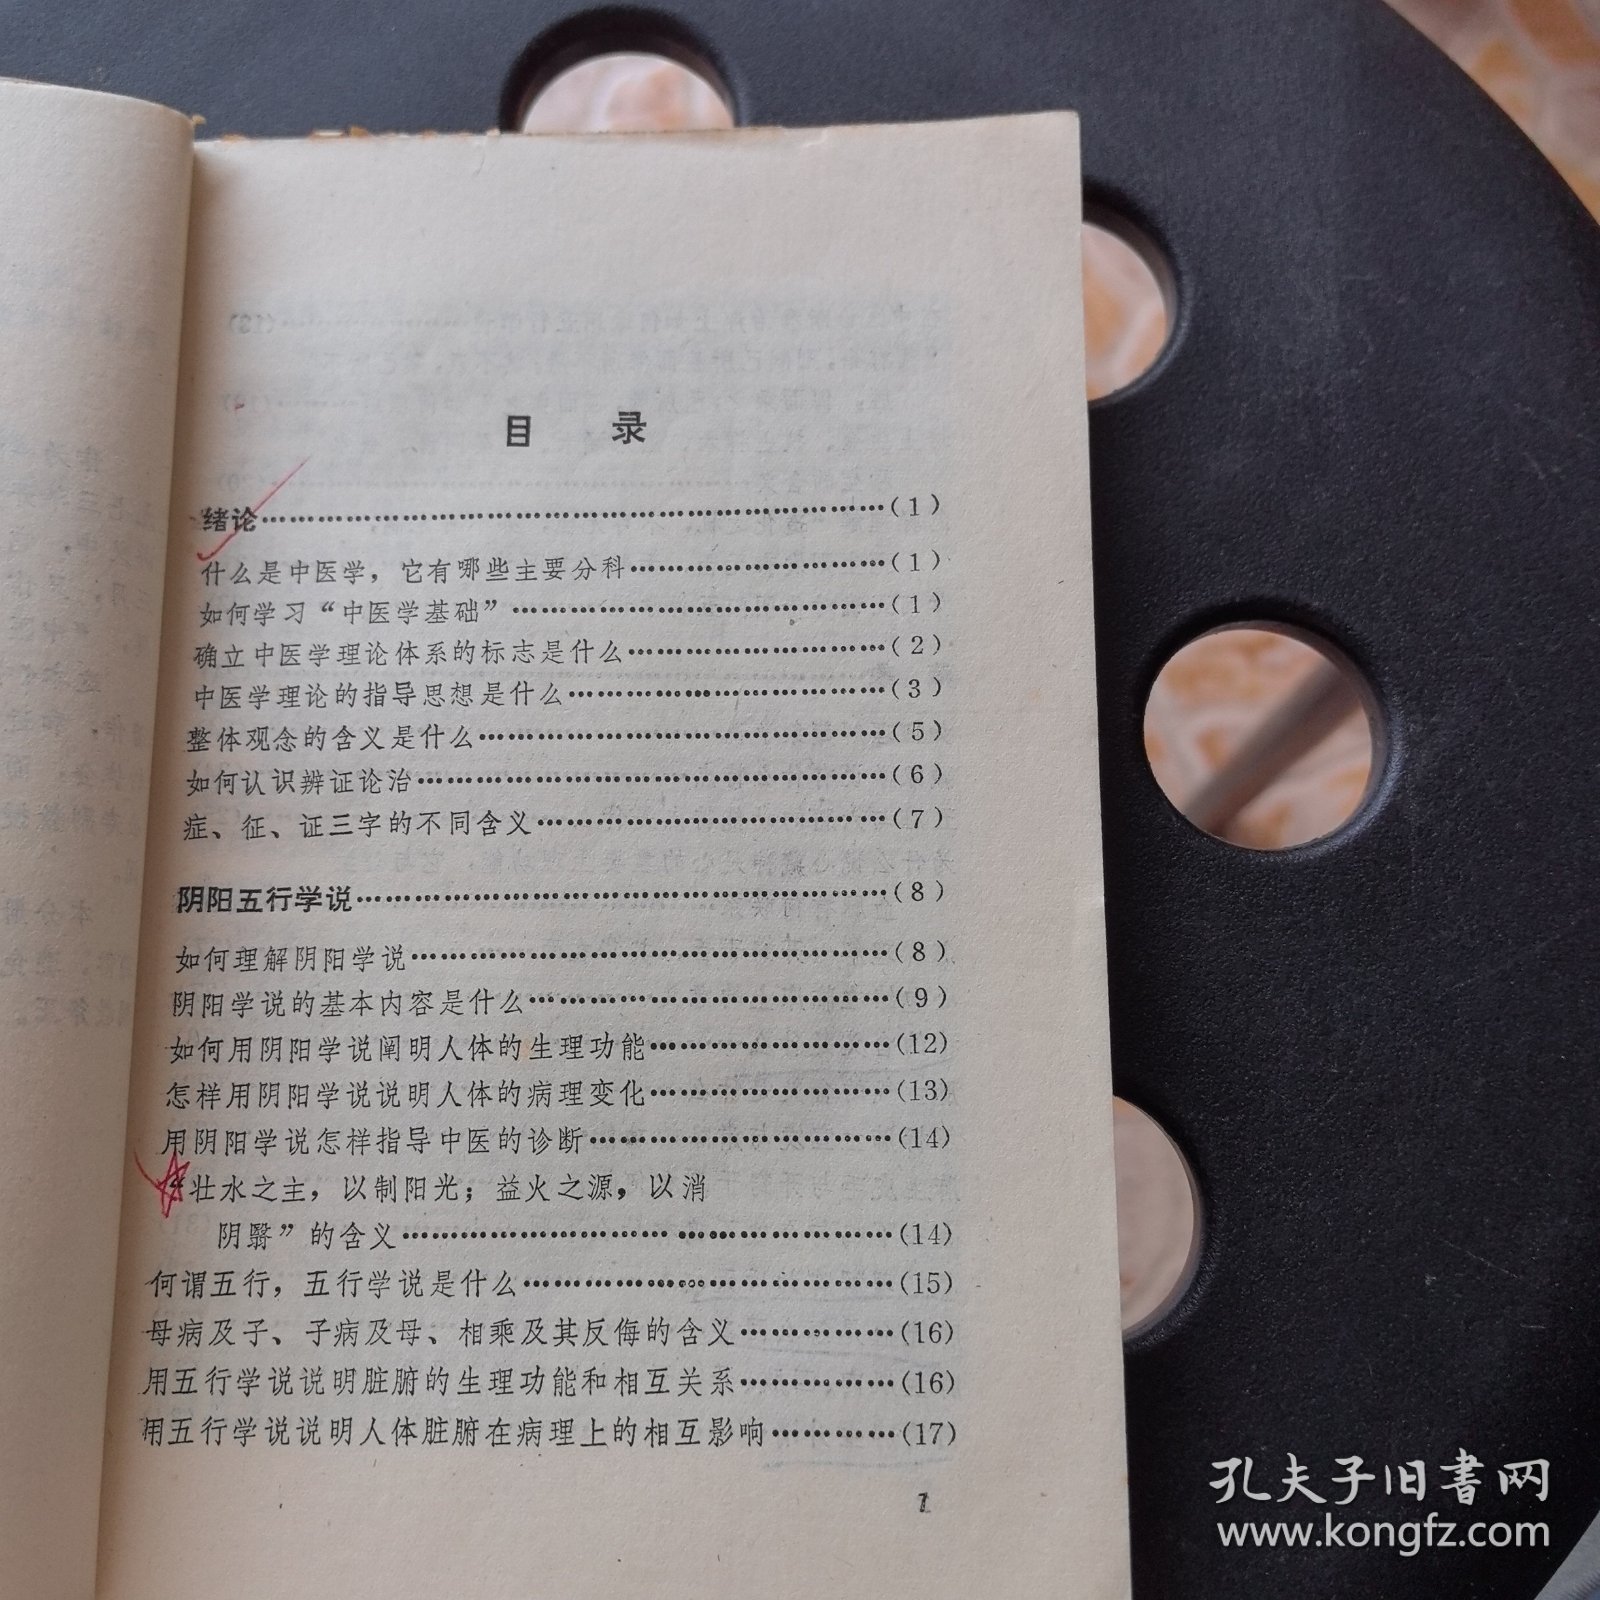 目 录
绪论……………………………………………………(1)
什么是中医学，它有哪些主要分科……………………(1)
如何学习“中医学基础”………………………………(1)
确立中医学理论体系的标志是什么……………………(2)
中医学理论的指导思想是什么…………………………(3)
整体观念的含义是什么…………………………………(5)
如何认识辨证论治………………………………………(6)
症、征、证三字的不同含义……………………………(7)
阴阳五行学说……………………………………………(8)
如何理解阴阳学说………………………………………(8)
阴阳学说的基本内容是什么……………………………(9)
如何用阴阳学说阐明人体的生理功能…………………(12)
怎样用阴阳学说说明人体的病理变化…………………(13)
用阴阳学说怎样指导中医的诊断………………………(14)
“壮水之主，以制阳光；益火之源，以消
阴翳”的含义……………………………………………(14)
何谓五行，五行学说是什么……………………………(15)
母病及子、子病及母、相乘及其反侮的含义…………(16)
用五行学说说明脏腑的生理功能和相互关系…………(16)
用五行学说说明人体脏腑在病理上的相互影响………(17)
1
孔夫子旧书网
www.kongfz.com